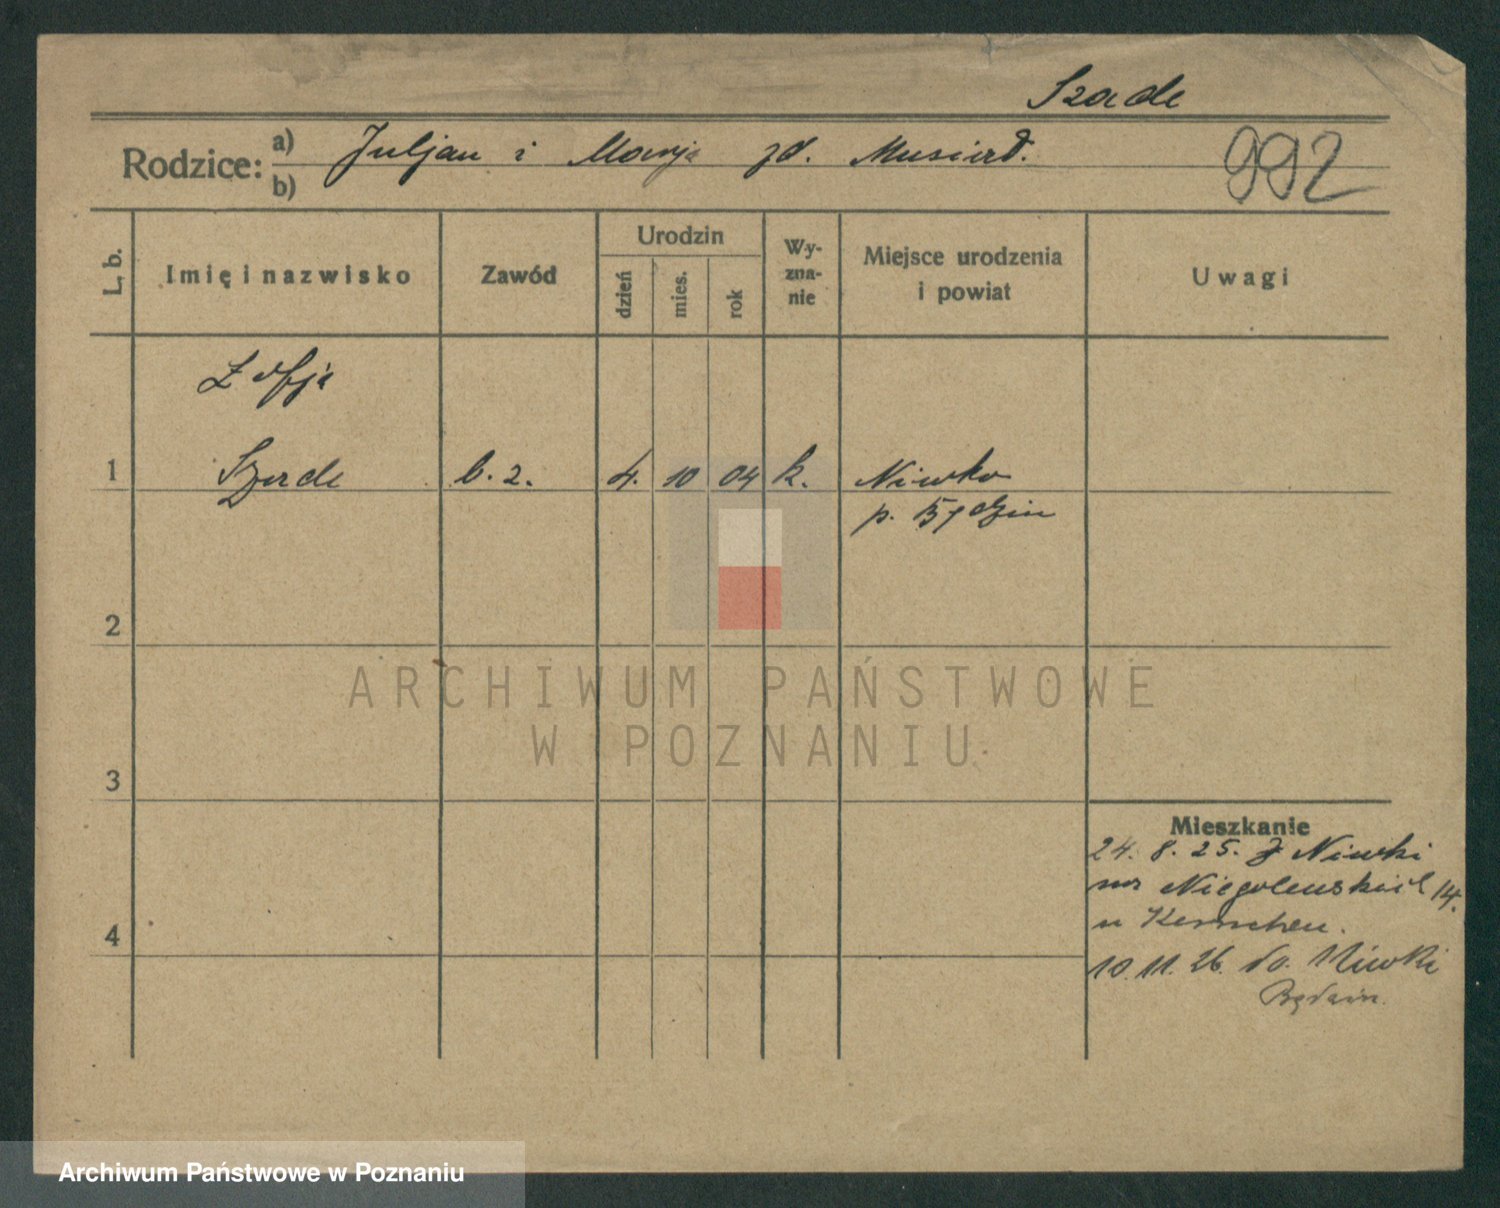 Szade
Rodzice: a) Juljan i Marja zd. Musiał.
b)
992
L. b.
Imię i nazwisko
Zawód
Urodzin
dzień
mies.
rok
Wy-
zna-
nie
Miejsce urodzenia
i powiat
Uwagi
Zofja
1 Szade b. z. 4. 10 04 k. Niwka
p. Będzin
2
ARCHIWUM PAŃSTWOWE
W POZNANIU
3
Mieszkanie
24. 8. 25. z Niwki
na Niegolewskich 14.
u
4
10. 11. 26. do Niwki
Będzin.
Archiwum Państwowe w Poznaniu